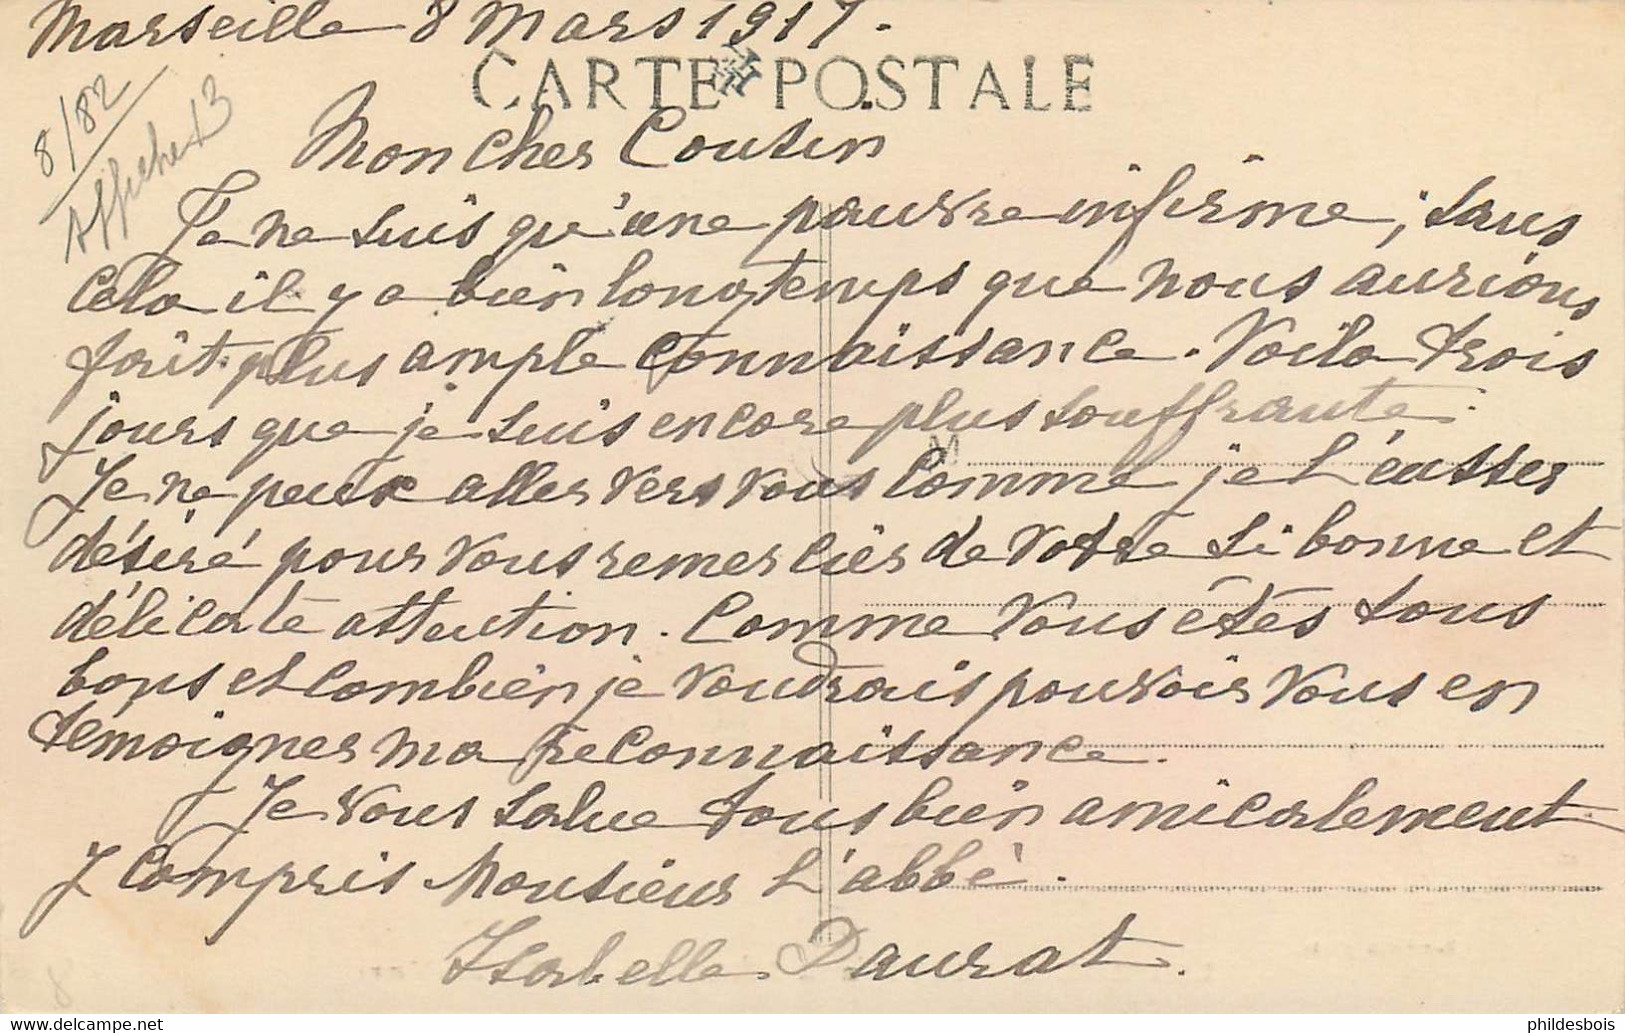 Marseille 8 Mars 1917.
CARTE POSTALE
8/82
Affiche 13
Mon Cher Cousin
Je ne suis qu'une pauvre infirme, sans
cela il y a bien longtemps que nous aurions
fait plus ample connaissance. Voila trois
jours que je suis encore plus souffrante.
Je ne peux aller vers vous Comme je L'eusser
désiré pour vous remercier de votre si bonne et
délicate attention. Comme Vous êtes tous
bons et combien je voudrais pouvoir vous en
témoigner ma reconnaissance.
Je vous salue tous bien amicalement
y Compris Monsieur L'abbé.
Isabelle Daurat.
phildesbois